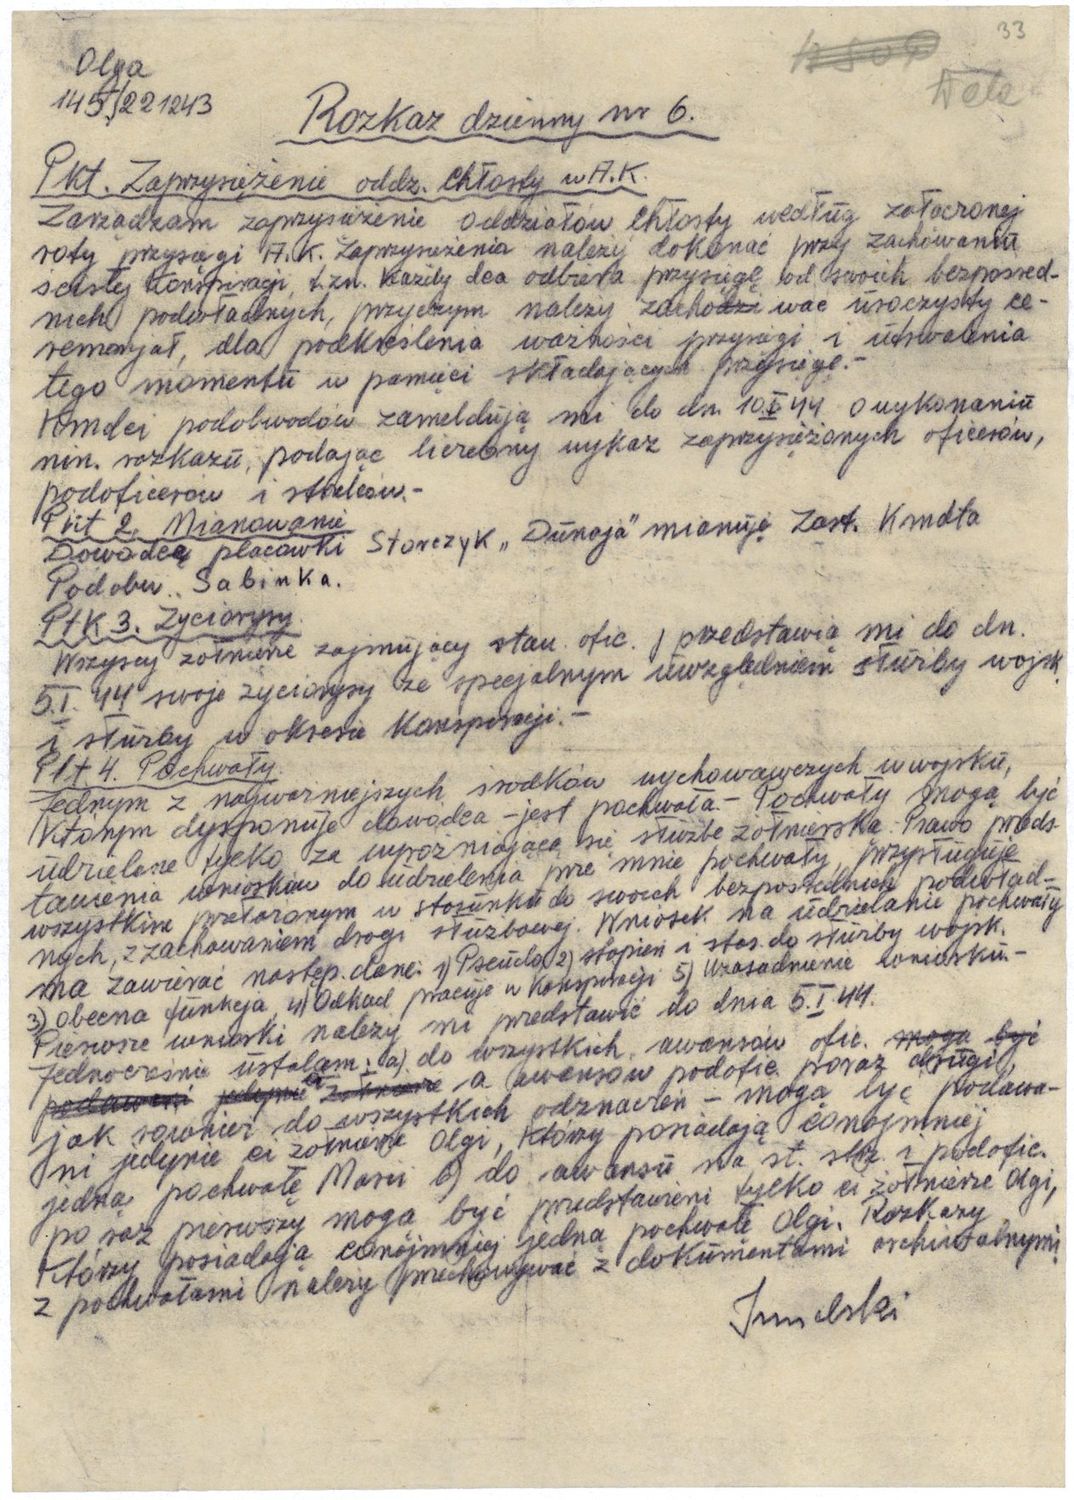 33
Olga
145/221243
Rozkaz dzienny nr 6.
Pkt. Zaprzysiężenie oddz. Chłosty w A.K.
Zarządzam zaprzysiężenie oddziałów Chłosty według załączonej
roty przysięgi A.K. Zaprzysiężenia należy dokonać przy zachowaniu
ścisłej konspiracji, t.zn. każdy dca odbiera przysięgę od swoich bezpośred-
nich podwładnych, przyczym należy zachować uroczysty ce-
remonjał, dla podkreślenia ważności przysięgi i utrwalenia
tego momentu w pamięci składających przysięgę.-
Kmdci podobwodów zameldują mi do dn. 10.I.44 o wykonaniu
nin. rozkazu, podając liczebny wykaz zaprzysiężonych oficerów,
podoficerów i strzelców.-
Pkt 2. Mianowanie
Dowódcę placówki Starczyk „Dunaja" mianuję Zast. Kmdta
Podobw. Sabinka.
Ptk 3. Życiorysy
Wszyscy żołnierze zajmujący stan. ofic. przedstawią mi do dn.
5.I.44 swoje życiorysy ze specjalnym uwzględniem służby wojsk.
i służby w okresie konspiracji.-
Pkt 4. Pochwały
Jednym z najważniejszych środków wychowawczych w wojsku,
którym dysponuje dowódca - jest pochwała.- Pochwały mogą być
udzielane tylko za wyróżniającą się służbę żołnierską. Prawo przeds-
tawienia wniosków do udzielenia prze mnie pochwały, przysługuje
wszystkim przełożonym w stosunku do swoich bezpośrednich podwład-
nych, z zachowaniem drogi służbowej. Wniosek na udzielanie pochwały
ma zawierać następ. dane: 1) Pseudo 2) stopień i stos. do służby wojsk.
3) obecna funkcja, 4) Odkąd pracuje w konspiracji 5) Uzasadnienie wniosku.-
Pierwsze wnioski należy mi przedstawić do dnia 5.I.44.
Jednocześnie ustalam: a) do wszystkich awansów ofic. mogą być
podawani jedynie żołnierze a awansów podofic. poraz drugi,
jak również do wszystkich odznaczeń - mogą być podawa-
ni jedynie ci żołnierze Olgi, którzy posiadają conajmniej
jedną pochwałę b) do awansu na st. strz. i podofic.
po raz pierwszy mogą być przedstawieni tylko ci żołnierze Olgi,
którzy posiadają conajmniej jedną pochwałę Olgi. Rozkazy
z pochwałami należy przechowywać z dokumentami archiwalnymi